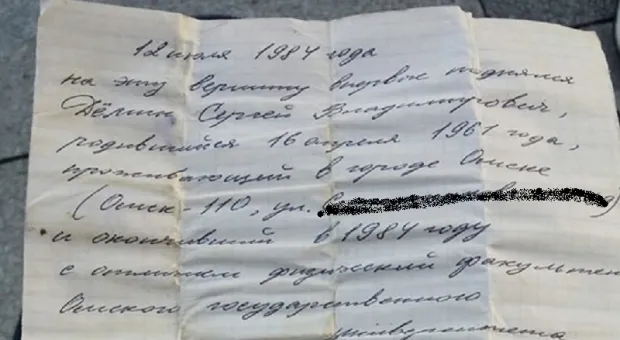 12 июля 1984 года
на эту вершину впервые поднялся
Дёмин Сергей Владимирович,
родившийся 16 апреля 1961 года,
проживающий в городе Омске
(Омск-110, ул.
и окончивший в 1984 году
с отличием физический факультет
Омского государственного
университета